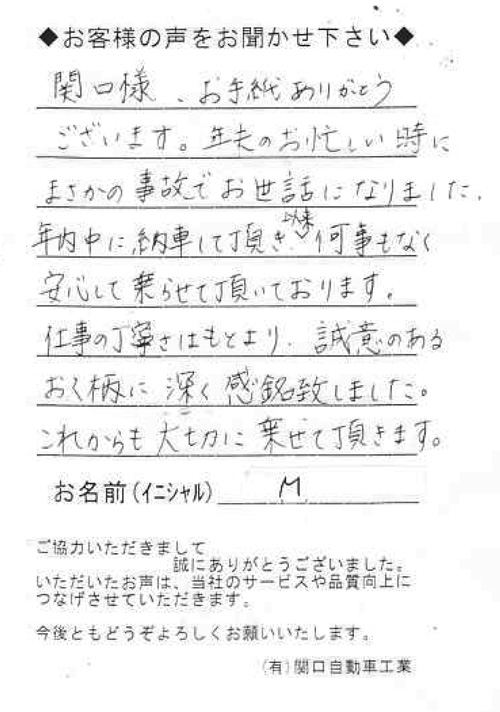 ◆お客様の声をお聞かせ下さい◆
関口様、お手紙ありがとう
ございます。年末のお忙しい時に
まさかの事故でお世話になりました、
年内中に納車して頂き以来何事もなく
安心して乗らせて頂いております。
仕事の丁寧さはもとより、誠意のある
お人柄に深く感銘致しました。
これからも大切に乗せて頂きます。
お名前(イニシャル) M
ご協力いただきまして
誠にありがとうございました。
いただいたお声は、当社のサービスや品質向上に
つなげさせていただきます。
今後ともどうぞよろしくお願いいたします。
(有)関口自動車工業